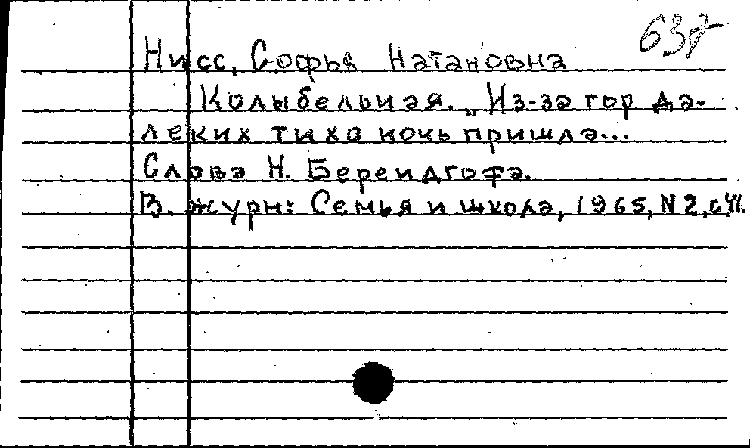 637
Нисс, Софья Натановна
Колыбельная. „Из-за гор да-
леких тиха ночь пришла...
Слова Н. Берендгофа.
В. журн: Семья и школа, 1965, N 2,